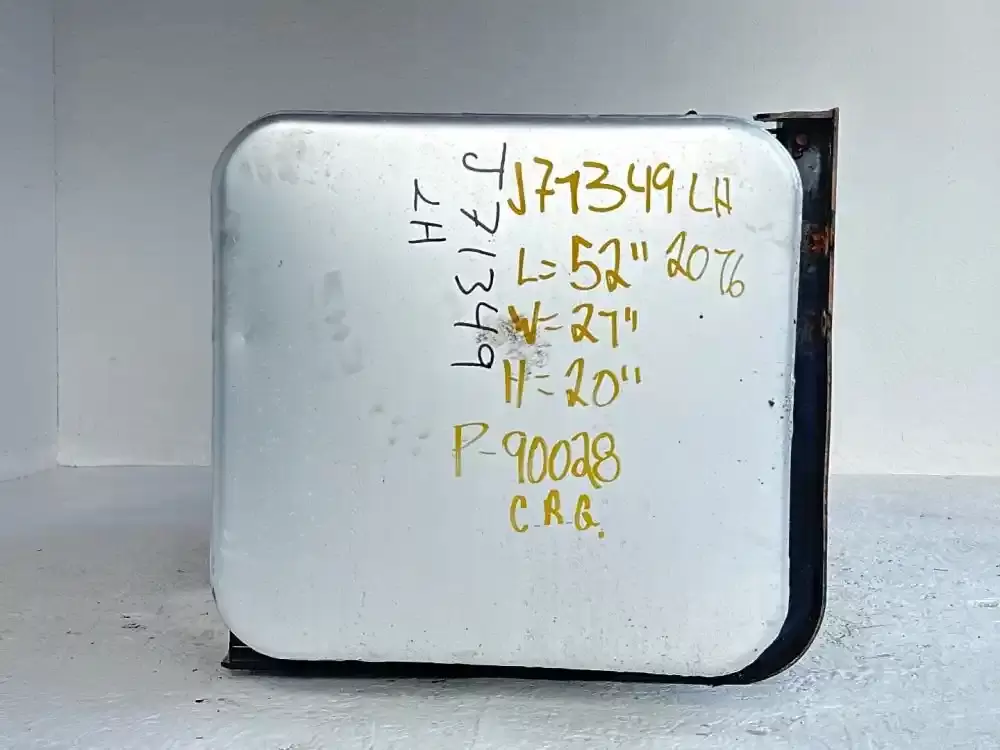 J71349 LH
L= 52" 2076
W= 27"
H= 20"
P-90028
C.R.G.
J71349
LH